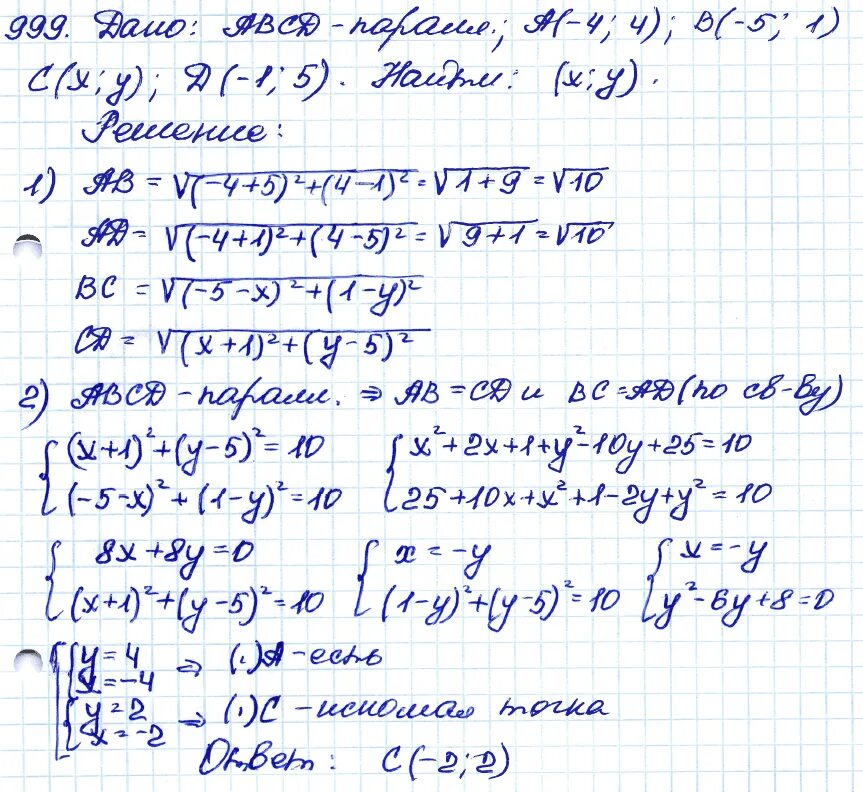 999. Дано: ABCD - паралл.; A(-4; 4); B(-5; 1)
C(x; y); D(-1; 5). Найти: (x; y).
Решение:
1) AB = √(-4+5)²+(4-1)² = √1+9 = √10
AD = √(-4+1)²+(4-5)² = √9+1 = √10
BC = √(-5-x)²+(1-y)²
CD = √(x+1)²+(y-5)²
2) ABCD - паралл. ⇒ AB = CD и BC = AD (по св-ву)
{ (x+1)²+(y-5)² = 10 { x²+2x+1+y²-10y+25 = 10
(-5-x)²+(1-y)² = 10 25+10x+x²+1-2y+y² = 10
{ 8x+8y = 0 { x = -y { x = -y
(x+1)²+(y-5)² = 10 (1-y)²+(y-5)² = 10 y²-6y+8 = 0
[ { y = 4 ⇒ (.) A - есть
x = -4
{ y = 2 ⇒ (.) C - искомая точка
x = -2
Ответ: C(-2; 2)